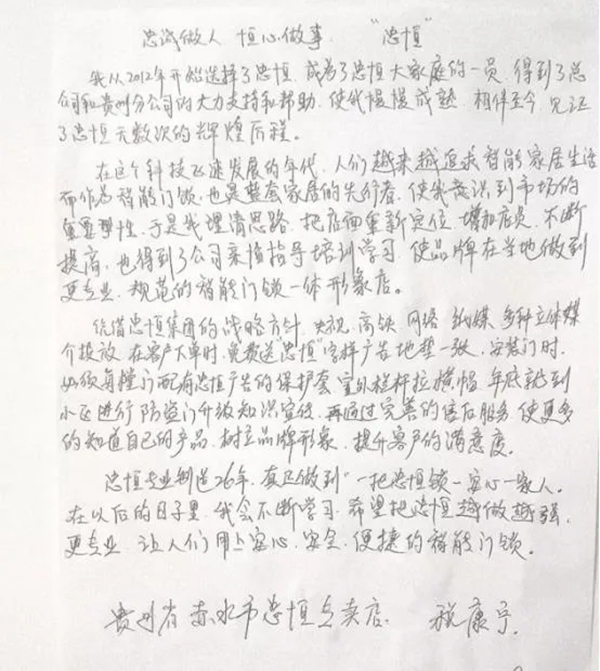 忠诚做人 恒心做事 "忠恒"
我从2012年开始选择了忠恒，成为了忠恒大家庭的一员，得到了总
公司和贵州分公司的大力支持和帮助，使我慢慢成熟，相伴至今，见证
了忠恒无数次的辉煌历程。
在这个科技飞速发展的年代，人们越来越追求智能家居生活
而作为智能门锁，也是整套家居的先行者，使我意识到市场的
重要性，于是我理清思路，把店面重新定位，增加店员，不断
提高，也得到了公司亲情指导培训学习，使品牌在当地做到
更专业，规范的智能门锁一体形象店。
凭借忠恒集团的战略方针，央视，高铁，网络，纸媒，多种立体媒
介投放，在客户下单时，免费送"忠恒"字样广告地垫一张，安装门时，
必须每樘门配有忠恒广告的保护套，室外栏杆拉横幅，年底就到
小区进行防盗门升级知识宣传，再通过完善的售后服务，使更多
的知道自己的产品，树立品牌形象，提升客户的满意度。
忠恒专业制造26年，真正做到"一把忠恒锁一安心一家人。
在以后的日子里，我会不断学习，希望把忠恒越做越强，
更专业，让人们用上安心，安全，便捷的智能门锁。
贵州省赤水市忠恒专卖店， 税康宁